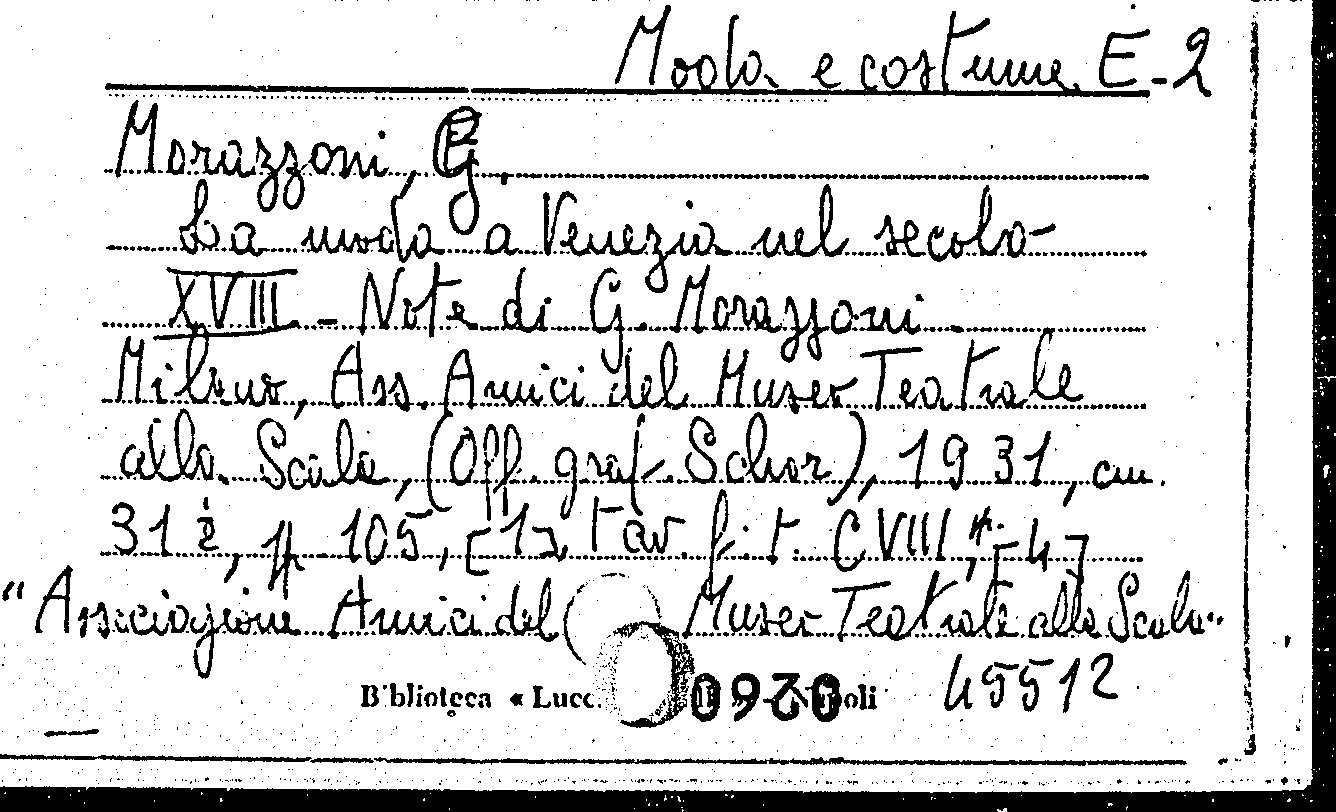 Moda e costume E-2
Morazzoni, G.
La moda a Venezia nel secolo
XVIII - Note di G. Morazzoni -
Milano, Ass. Amici del Museo Teatrale
alla Scala, (Off. graf. Schor), 1931, cm.
31 ½, pp. 105, [1], tav. f. t. CVIII, pp. [4]
"Associazione Amici del Museo Teatrale alla Scala"
Biblioteca « Lucc Napoli 45512